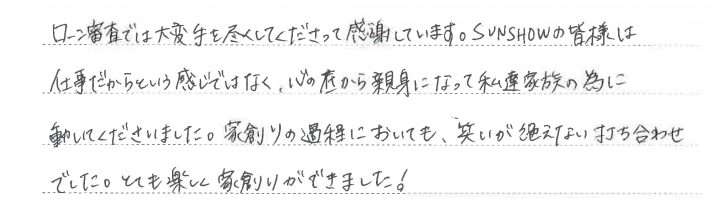 ローン審査では大変手を尽くしてくださって感謝しています。SUNSHOWの皆様は
仕事だからという感じではなく、心の底から親身になって私達家族の為に
動いてくださいました。家創りの過程においても、笑いが絶えない打ち合わせ
でした。とても楽しく家創りができました！